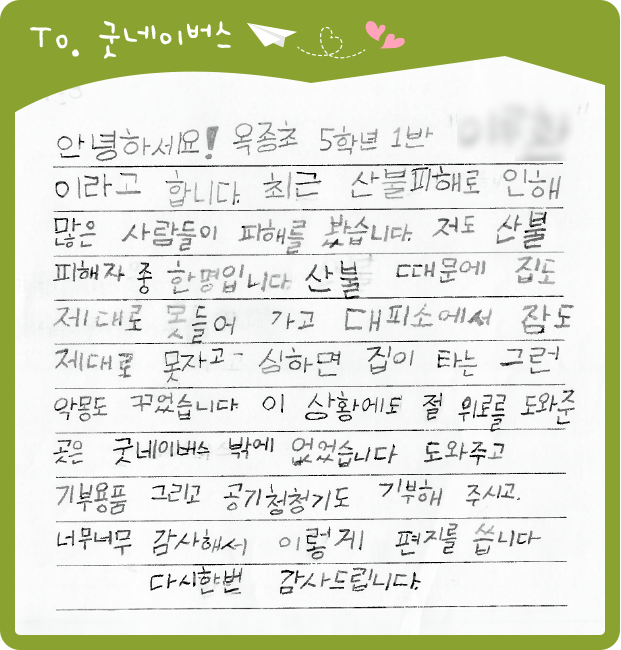 To. 굿네이버스
안녕하세요! 옥종초 5학년 1반
이라고 합니다. 최근 산불피해로 인해
많은 사람들이 피해를 봤습니다. 저도 산불
피해자 중 한명입니다 산불 때문에 집도
제대로 못들어 가고 대피소에서 잠도
제대로 못자고 심하면 집이 타는 그런
악몽도 꾸었습니다 이 상황에도 절 위로를 도와준
곳은 굿네이버스 밖에 없었습니다 도와주고
기부용품 그리고 공기청청기도 기부해 주시고.
너무너무 감사해서 이렇게 편지를 씁니다
다시한번 감사드립니다.